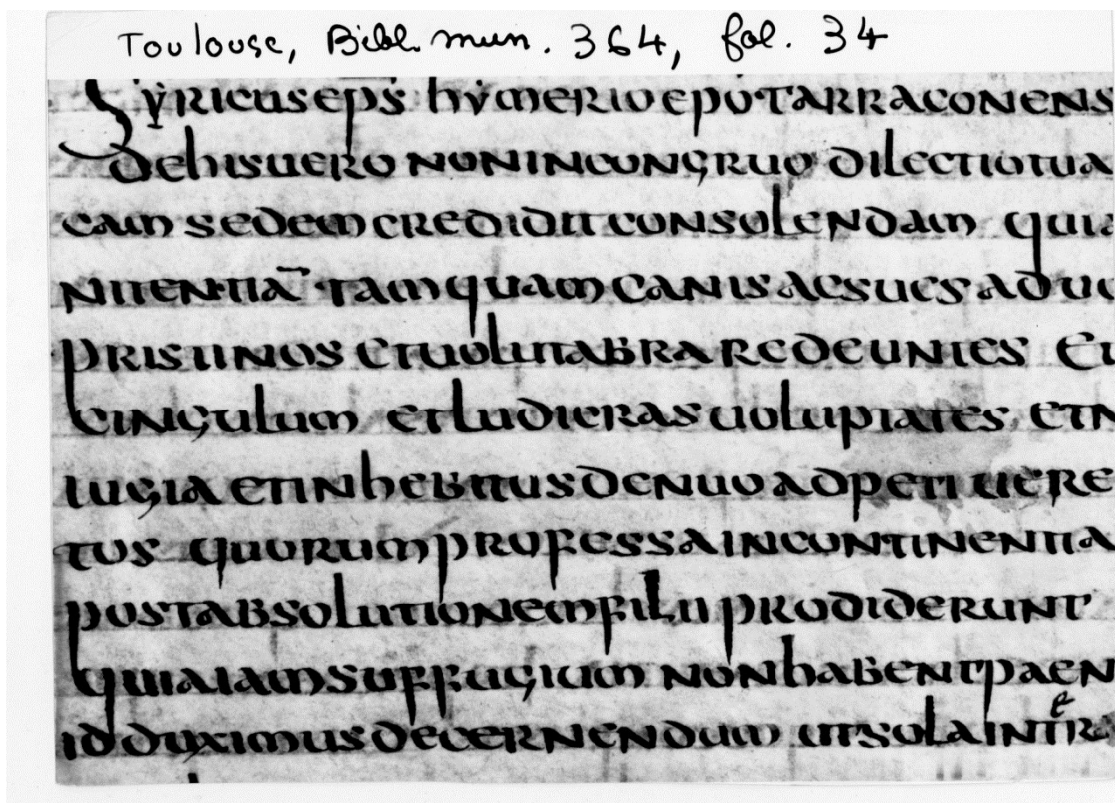 Toulouse, Bibl. mun. 364, fol. 34
SYRICUS EPS HYMERIO EPO TARRACONENS
DE HIS UERO NON INCONGRUO DILECTIO TUA
CAM SEDEM CREDIDIT CONSOLENDAM QUI A
NITENTIĀ TAMQUAM CANIS AC SUES AD UO
PRISTINOS ET UOLUTABRA REDEUNTES ET
CINGULUM ET LUDICRAS UOLUPTATES ET N
IUGIA ET INHEBITUS DENUO ADPETIUERE
TUS QUORUM PROFESSA INCONTINENTIA
POST ABSOLUTIONEM FILII PRODIDERUNT
QUIA IAM SUFFUGIUM NON HABENT PAEN
ID DUXIMUS DECERNENDUM UT SOLA INTRA